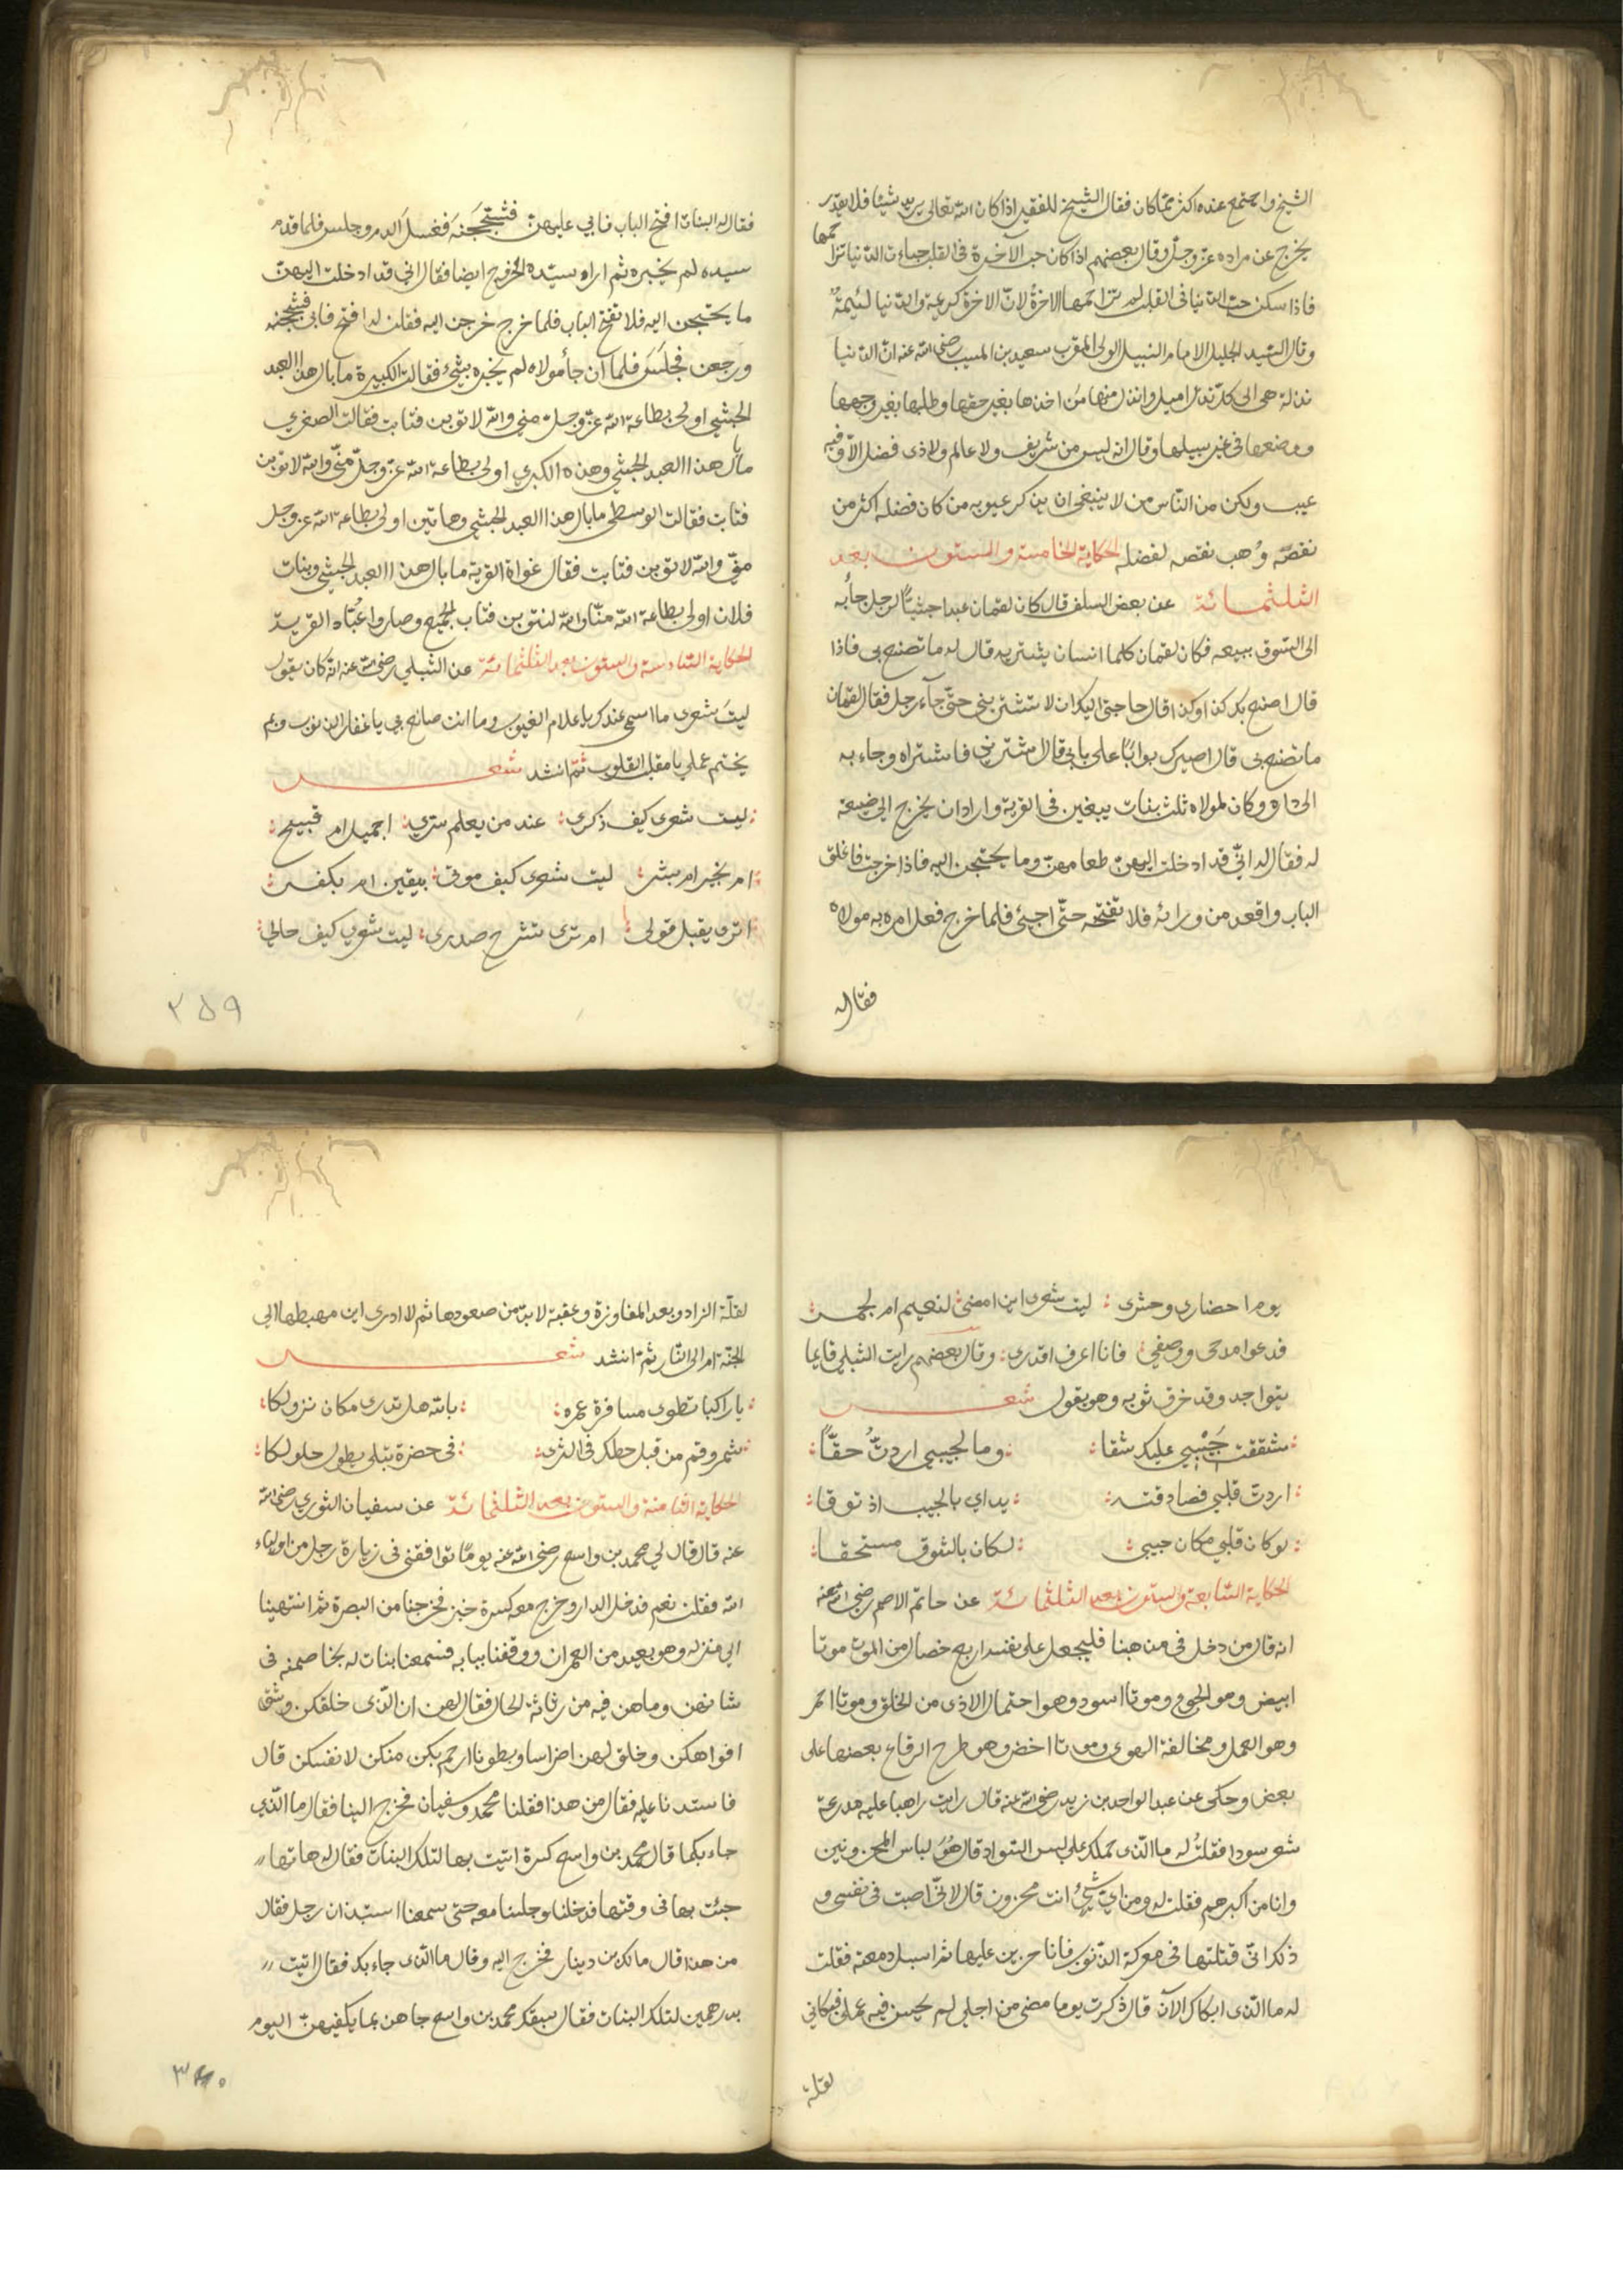 الشيخ واجتمع عنده اكثر مما كان فقال الشيخ للفقير اذا كان الله تعالى يريد شيئا فلا يقدر
يخرج عن مراده عز وجل وقال بعضهم اذا كان حب الآخرة في القلب جاءت الدنيا تزاحمها
فاذا سكن حب الدنيا في القلب لم تزاحمها الاخرة لان الاخرة كريمة والدنيا لئيمة
وقال السيد الجليل الامام النبيل الولي المقرب سعيد بن المسيب رضي الله عنه ان الدنيا
نذلة هي الى كل نذل اميل وانذل منها من اخذها بغير حقها وطلبها بغير وجهها
ووضعها في غير سبيلها وقال انه ليس من شريف ولا عالم ولا ذى فضل الا وفيه
عيب ولكن من الناس من لا ينبغي ان يذكر عيوبه من كان فضله اكثر من
نقصه وُهب نقصه لفضله الحكاية الخامسة والستون بعد
الثلثمائة عن بعض السلف قال كان لقمان عبدا حبشيًّا لرجل جاء به
الى السوق يبيعه فكان لقمان كلما انسان يشتريه قال له ما تصنع بى فاذا
قال اصنع بك كذا وكذا قال حاجتى اليك ان لا تشترينى حتى جاء رجل فقال لقمان
ما تصنع بى قال اصيرك بوابًا على بابى قال اشترينى فاشتراه وجاء به
الى داره وكان لمولاه ثلث بنات يبغين فى القرية واراد ان يخرج الى ضيعة
له فقال له انى قد ادخلت اليهن طعامهن وما يحتجن اليه فاذا خرجت فاغلق
الباب واقعد من ورائه فلا تفتحه حتى اجئ فلما خرج فعل امره به مولاه
فقال له
فقال له البنات افتح الباب فابي عليهن فشججنه فغسل الدم وجلس فلما قدم
سيده لم يخبره ثم اراد سيده الخروج ايضا فقال اني قد ادخلت اليهن
ما يحتجن اليه فلا تفتح الباب فلما خرج خرجن اليه فقلن له افتح فابى فشججنه
ورجعن فجلس فلما ان جأ مولاه لم يخبره بشئ فقالت الكبيرة ما بال هذا العبد
الحبشي اولى بطاعة الله عز وجل منى والله لاتوبن فتابت فقالت الصغرى
ما بال هذا العبد الحبشي وهذه الكبرى اولى بطاعة الله عز وجل منى والله لاتوبن
فتابت فقالت الوسطى ما بال هذا العبد الحبشي وهاتين اولى بطاعة الله عز وجل
منى والله لاتوبن فتابت فقال غواة القرية ما بال هذا العبد الحبشي وبنات
فلان اولى بطاعة الله منا والله لنتوبن فتاب الجميع وصاروا عُبّاد القرية
الحكاية السادسة والستون بعد الثلثمائة عن الشبلي رضى الله عنه انه كان يقول
ليتَ شعرى ما اسمى عندك يا علام الغيوب وما انت صانع بى يا غفار الذنوب وبم
يختم عملي يا مقلب القلوب ثم انشد شعر
ليت شعرى كيف ذكرى عند من يعلم سري اجميل ام قبيح
ام بخير ام بشر ليت شعرى كيف موتى بيقين ام بكفر
اترى يقبل قولى ام ترى تشرح صدرى ليت شعرى كيف حالي
٢٥٩
يوم احضارى وحشرى ليت شعرى اين امضى لنعيم ام لجمر
فدعوا مدحى ووصفي فانا اعرف اقدرى وقال بعضهم رايت الشبلي قايما
يتواجد وقد خرق ثوبه وهو يقول شعر
شققت جَيْبي عليك شقا وما لجيبي اردتُ حقّا
اردت قلبي فصادفته يداي بالجيب اذ توقا
لو كان قلبي مكان جيبى لكان بالشوق مستحقا
الحكاية السابعة والستون بعد الثلثمائة عن حاتم الاصم رضى الله عنه
انه قال من دخل فى مذهبنا فليجعل على نفسه اربع خصال من الموت موتا
ابيض وهو الجوع وموتا اسود وهو احتمال الاذى من الخلق وموتا احمر
وهو العمل ومخالفة الهوى وموتا اخضر وهو طرح الرقاع بعضها على
بعض وحكى عن عبد الواحد بن زيد رضى الله عنه قال رايت راهبا عليه مدرعة
شعر سودا فقلتُ له ما الذى حملك على لبس السواد قال هُوَ لباس المحزونين
وانا من اكبرهم فقلت له ومن اى شىءٍ انت محزون قال لانى اصبت فى نفسى و
ذلك انى قتلتها فى معركة الذنوب فانا حزين عليها ثم اسبل دمعه فقلت
له ما الذى ابكاك الآن قال ذكرت يوما مضى من اجلى لم يحسن فيه عملى فبكائي
لقلة
لقلّة الزاد وبعد المفاوزة وعقبة لا بد من صعودها ثم لا ادرى اين مهبطها الى
الجنة ام الى النار ثم انشد شعر
يا راكبا تطوى مسافرة عمره بالله هل تدرى مكان نزولكا
شمر وقم من قبل حطك فى الثرى فى حضرة تبلى بطول حلولكا
الحكاية الثامنة والستون بعد الثلثمائة عن سفيان الثوري رضى الله
عنه قال قال لي محمد بن واسع رضى الله عنه يومًا توافقنى فى زيارة رجل من اولياء
الله فقلت نعم فدخل الدار وخرج معه كسرة خبز فخرجنا من البصرة ثم انتهينا
الى منزله وهو بعيد من العمران ووقفنا ببابه فسمعنا بنات له يخاصمنه فى
شانهن وما هن فيه من رثاثة الحال فقال لهن ان الذى خلقكن وشق
افواهكن وخلق لهن اضراسا وبطونا ارحم بكن منكن لانفسكن قال
فاستدنا عليه فقال من هذا فقلنا محمد وسفيان فخرج الينا فقال ما الذي
جاء بكما قال محمد بن واسع كسرة اتيت بها لتلك البنات فقال له هاتها
جئت بها فى وقتها فدخلنا وجلسنا معه حتى سمعنا استيذان رجل فقال
من هذا قال مالك بن دينار فخرج اليه وقال ما الذى جاء بك فقال اتيت
بدرهمين لتلك البنات فقال سبقك محمد بن واسع جاهن بما يكفيهن اليوم